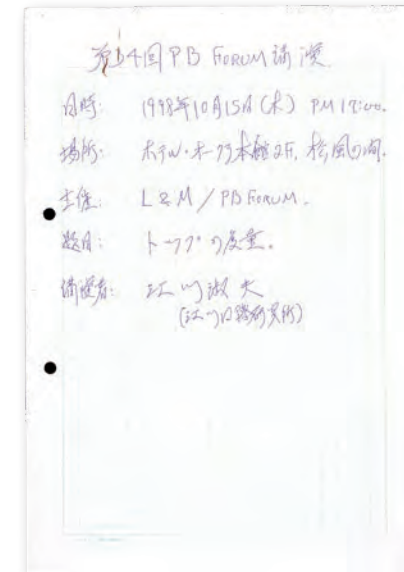 第14回 PB FORUM 講演
日時: 1998年10月15日(木) PM 12:00.
場所: ホテル・オークラ本館2F, 松風の間.
主催: L&M / PB FORUM.
題目: トップの度量.
講演者: 江川淑夫